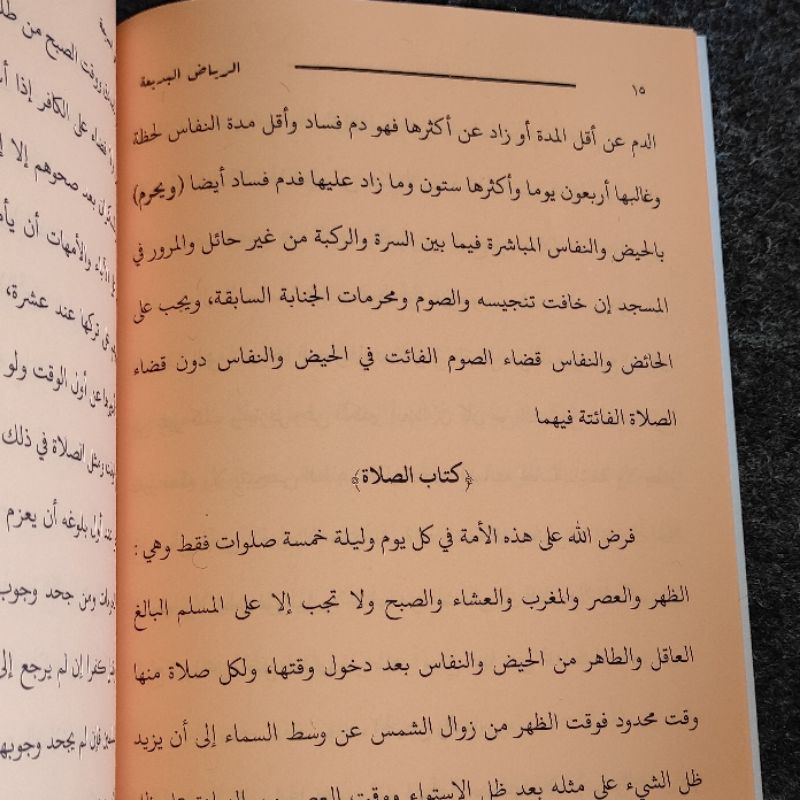 ١٥ الرياض البديعة
الدم عن أقل المدة أو زاد عن أكثرها فهو دم فساد وأقل مدة النفاس لحظة
وغالبها أربعون يوما وأكثرها ستون وما زاد عليها فدم فساد أيضا (ويحرم)
بالحيض والنفاس المباشرة فيما بين السرة والركبة من غير حائل والمرور في
المسجد إن خافت تنجيسه والصوم ومحرمات الجنابة السابقة، ويجب على
الحائض والنفاس قضاء الصوم الفائت في الحيض والنفاس دون قضاء
الصلاة الفائتة فيهما
﴿كتاب الصلاة﴾
فرض الله على هذه الأمة في كل يوم وليلة خمسة صلوات فقط وهي:
الظهر والعصر والمغرب والعشاء والصبح ولا تجب إلا على المسلم البالغ
العاقل والطاهر من الحيض والنفاس بعد دخول وقتها، ولكل صلاة منها
وقت محدود فوقت الظهر من زوال الشمس عن وسط السماء إلى أن يزيد
ظل الشيء على مثله بعد ظل الاستواء ووقت العصر
ووقت الصبح من
على الكافر إذا
بعد صحوهم إلا
والأمهات أن
تركها عند عشرة،
عن أول الوقت ولو
ومثل الصلاة في ذلك
بلوغه أن يعزم
ومن جحد وجوب
كفرا إن لم يرجع إلى
فإن لم يجحد وجوبها